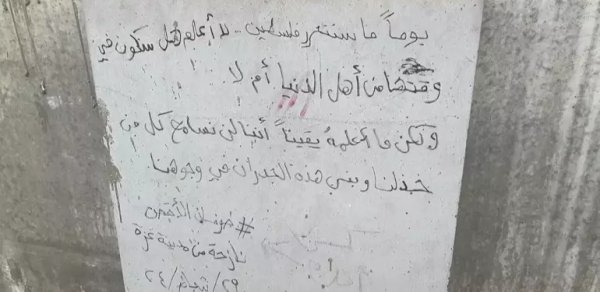 يوماً ما ستتحرر فلسطين .. لا أعلم هل سنكون في
وقتها من أهل الدنيا أم لا
ولكن ما أعلمهُ يقيناً أننا لن نسامح كل من
خذلنا وبنى هذه الجدران في وجوهنا
#
نازحة من مدينة غزة
٢٩/ /٢٤